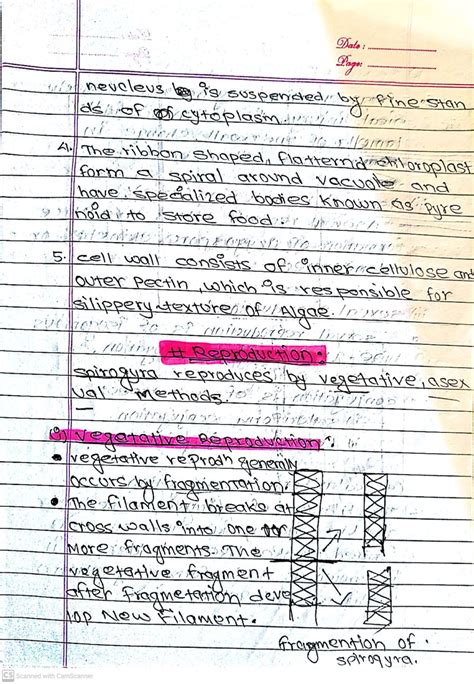 Date :
Page:
neucleus is suspended by fine stan
ds of cytoplasm
4. The ribbon shaped, flatternd chloroplast
form a spiral around vacuole and
have specialized bodies known as pyre
noid to store food.
5. cell wall consists of inner cellulose and
outer pectin, which is responsible for
silippery texture of Algae.
# Reproduction:
spirogyra reproduces by vegetative, asex
ual methods.
i) Vegetative Reproduction:
• vegetative reprodn generally
occurs by fragmentation.
• The filament breaks at
cross walls into one or
more fragments. The
vegetative fragment
after fragmetation deve
lop New Filament.
fragmention of
spirogyra.
CS Scanned with CamScanner